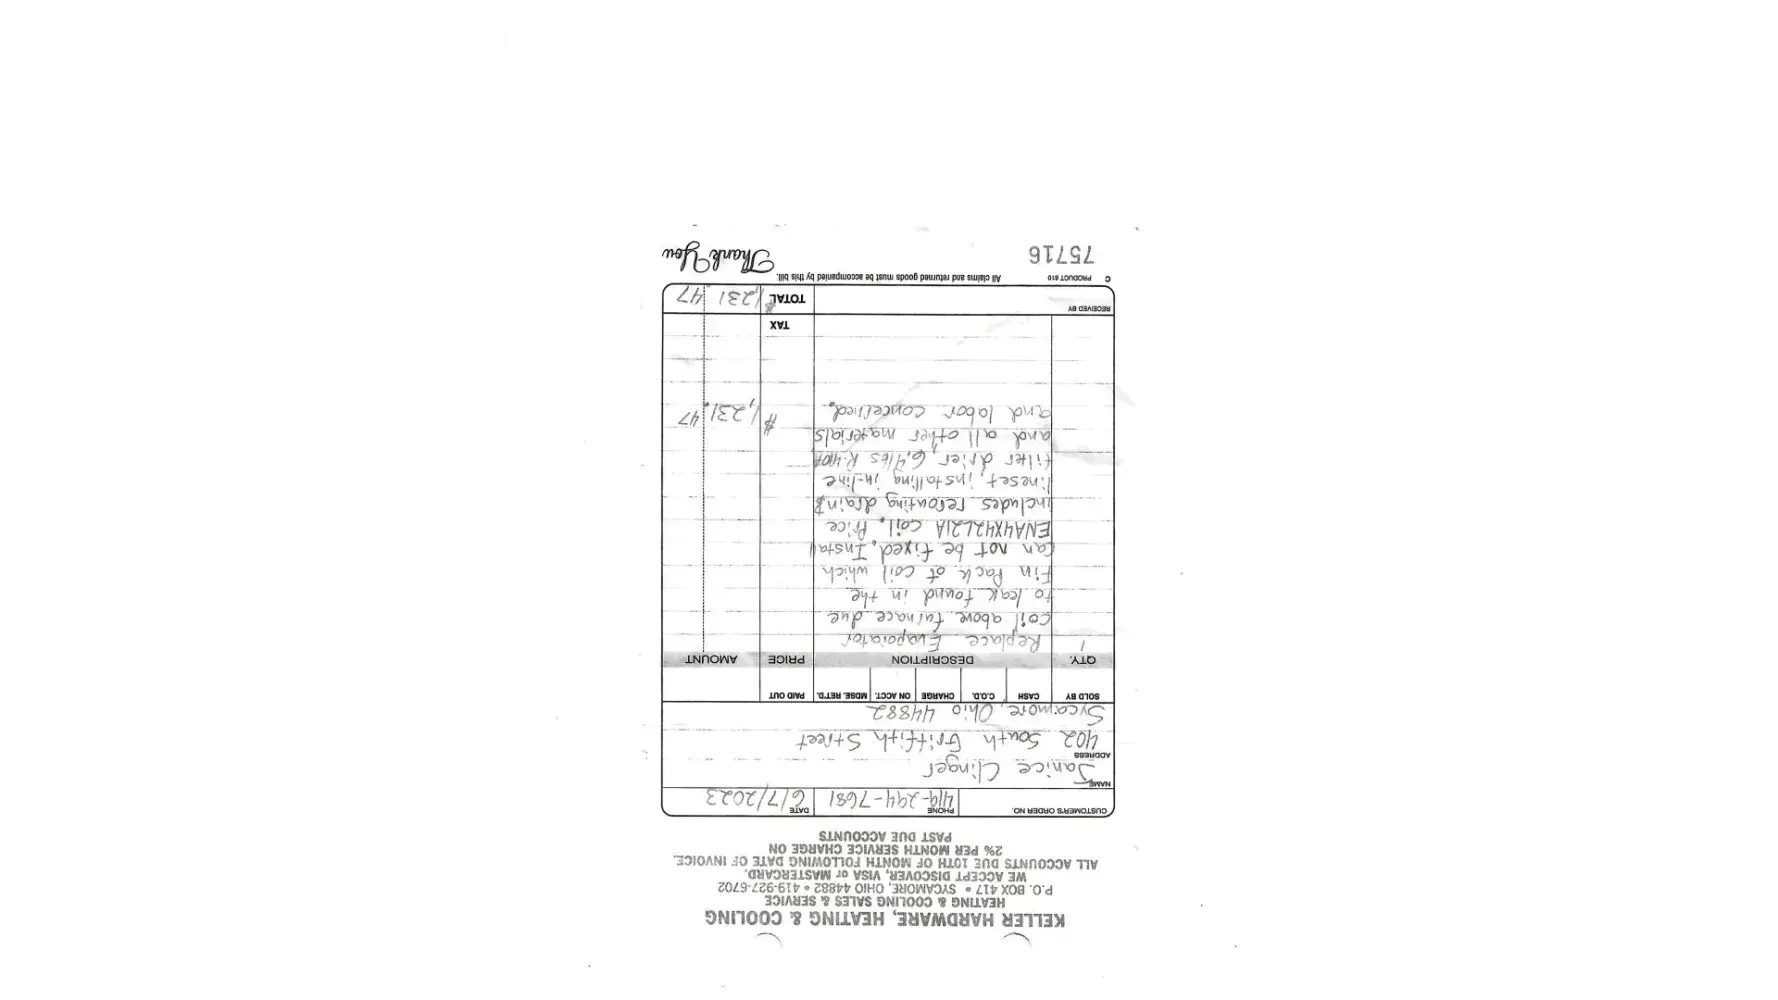 KELLER HARDWARE, HEATING & COOLING
HEATING & COOLING SALES & SERVICE
P.O. BOX 417 • SYCAMORE, OHIO 44882 • 419-927-6702
WE ACCEPT DISCOVER, VISA or MASTERCARD.
ALL ACCOUNTS DUE 10TH OF MONTH FOLLOWING DATE OF INVOICE.
2% PER MONTH SERVICE CHARGE ON
PAST DUE ACCOUNTS
CUSTOMER'S ORDER NO. PHONE 419-294-7681 DATE 6/7/2023
NAME Janice Clinger
ADDRESS 402 South Griffith Street
Sycamore, Ohio 44882
SOLD BY CASH C.O.D. CHARGE ON ACCT. MDSE. RET'D. PAID OUT
QTY. DESCRIPTION PRICE AMOUNT
1 Replace Evaporator
coil above furnace due
to leak found in the
Fin Pack of coil which
can not be fixed. Install
ENA4X42L21A coil. Price
includes rerouting drain &
lineset, installing in-line
filter drier, 6.4 lbs R-410A
and all other materials
and labor concerned. $1,231.47
TAX
RECEIVED BY TOTAL $1,231.47
C PRODUCT 610 All claims and returned goods must be accompanied by this bill.
75716 Thank You